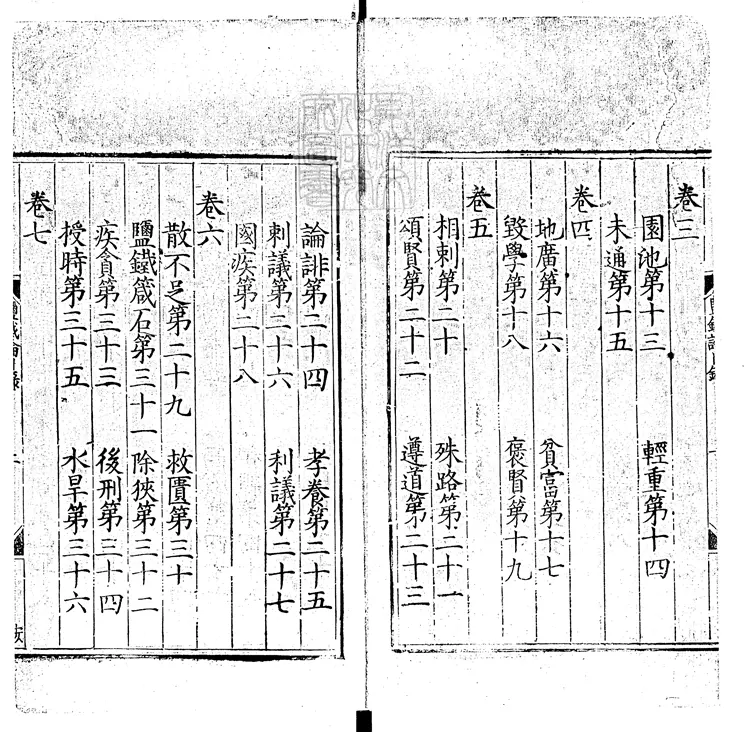 卷三
園池第十三 輕重第十四
未通第十五
卷四
地廣第十六 貧富第十七
毀學第十八 褒賢第十九
卷五
相刺第二十 殊路第二十一
頌賢第二十二 遵道第二十三
論誹第二十四 孝養第二十五
刺議第二十六 利議第二十七
國疾第二十八
卷六
散不足第二十九 救匱第三十
鹽鐵箴石第三十一 除狹第三十二
疾貪第三十三 後刑第三十四
授時第三十五 水旱第三十六
卷七